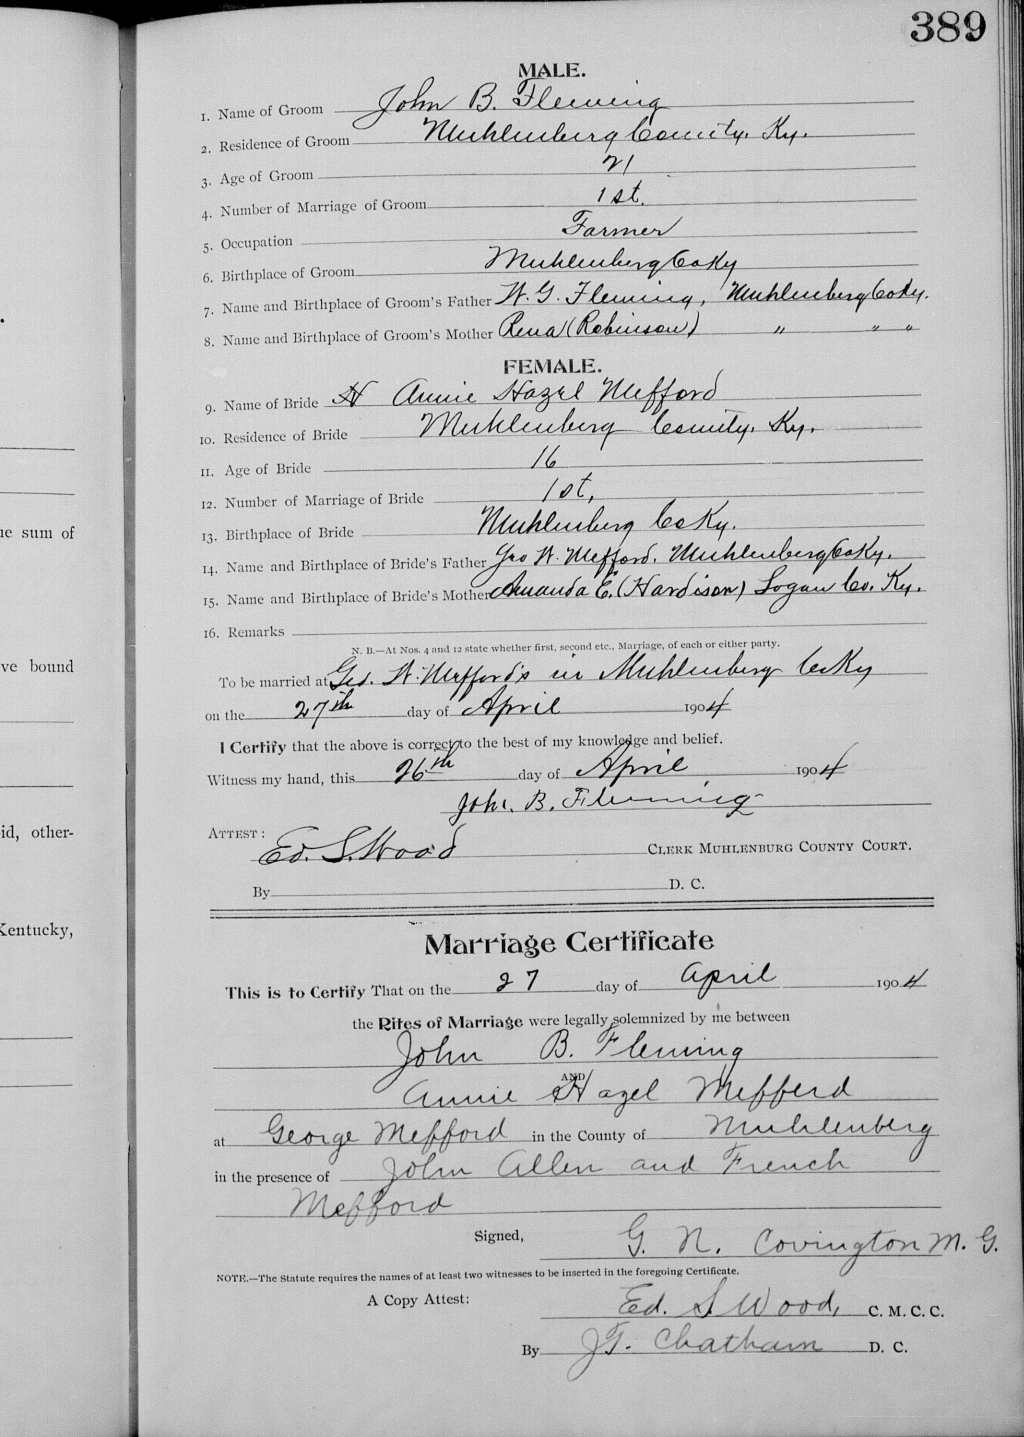 389
MALE.
1. Name of Groom John B. Fleming
2. Residence of Groom Muhlenberg County, Ky.
3. Age of Groom 21
4. Number of Marriage of Groom 1st.
5. Occupation Farmer
6. Birthplace of Groom Muhlenberg Co Ky
7. Name and Birthplace of Groom's Father W. G. Fleming, Muhlenberg Co Ky.
8. Name and Birthplace of Groom's Mother Rena (Robinson) " " "
FEMALE.
9. Name of Bride H Annie Hazel Mefford
10. Residence of Bride Muhlenberg County, Ky.
11. Age of Bride 16
12. Number of Marriage of Bride 1st,
ne sum of
13. Birthplace of Bride Muhlenberg Co Ky.
14. Name and Birthplace of Bride's Father Geo W. Mefford, Muhlenberg Co Ky.
15. Name and Birthplace of Bride's Mother Amanda E. (Hardison) Logan Co. Ky.
16. Remarks
N. B.—At Nos. 4 and 12 state whether first, second etc., Marriage, of each or either party.
ve bound
To be married at Geo. W. Mefford's in Muhlenberg Co Ky
on the 27th day of April 1904
I Certify that the above is correct to the best of my knowledge and belief.
Witness my hand, this 26th day of April 1904
John. B. Fleming
id, other-
ATTEST: Ed. S. Wood CLERK MUHLENBURG COUNTY COURT.
By D. C.
Kentucky,
Marriage Certificate
This is to Certify That on the 27 day of April 1904
the Rites of Marriage were legally solemnized by me between
John B. Fleming
AND
Annie Hazel Mefferd
at George Mefford in the County of Muhlenberg
in the presence of John Allen and French
Mefford
Signed, G. N. Covington M. G.
NOTE.—The Statute requires the names of at least two witnesses to be inserted in the foregoing Certificate.
A Copy Attest: Ed. S. Wood, C. M. C. C.
By J. T. Chatham D. C.